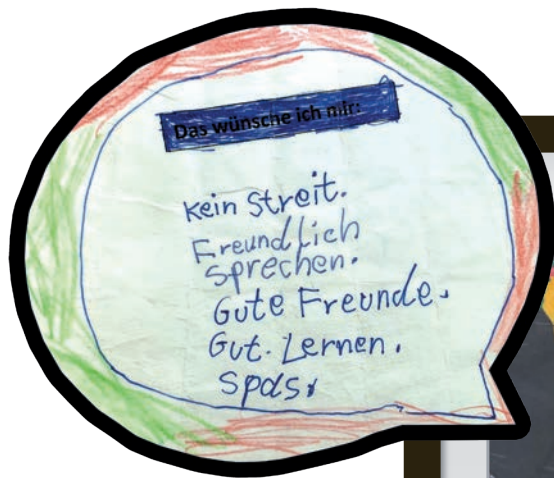 Das wünsche ich mir:
Kein Streit.
Freundlich
Sprechen.
Gute Freunde.
Gut. Lernen.
Spas.